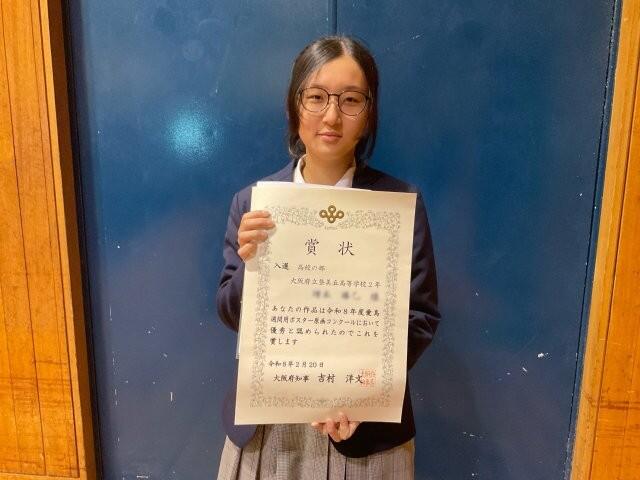 賞状
入選 高校の部
大阪府立登美丘高等学校2年
あなたの作品は令和8年度愛鳥
週間用ポスター原画コンクールにおいて
優秀と認められたのでこれを
賞します
令和8年2月20日
大阪府知事 吉村 洋文